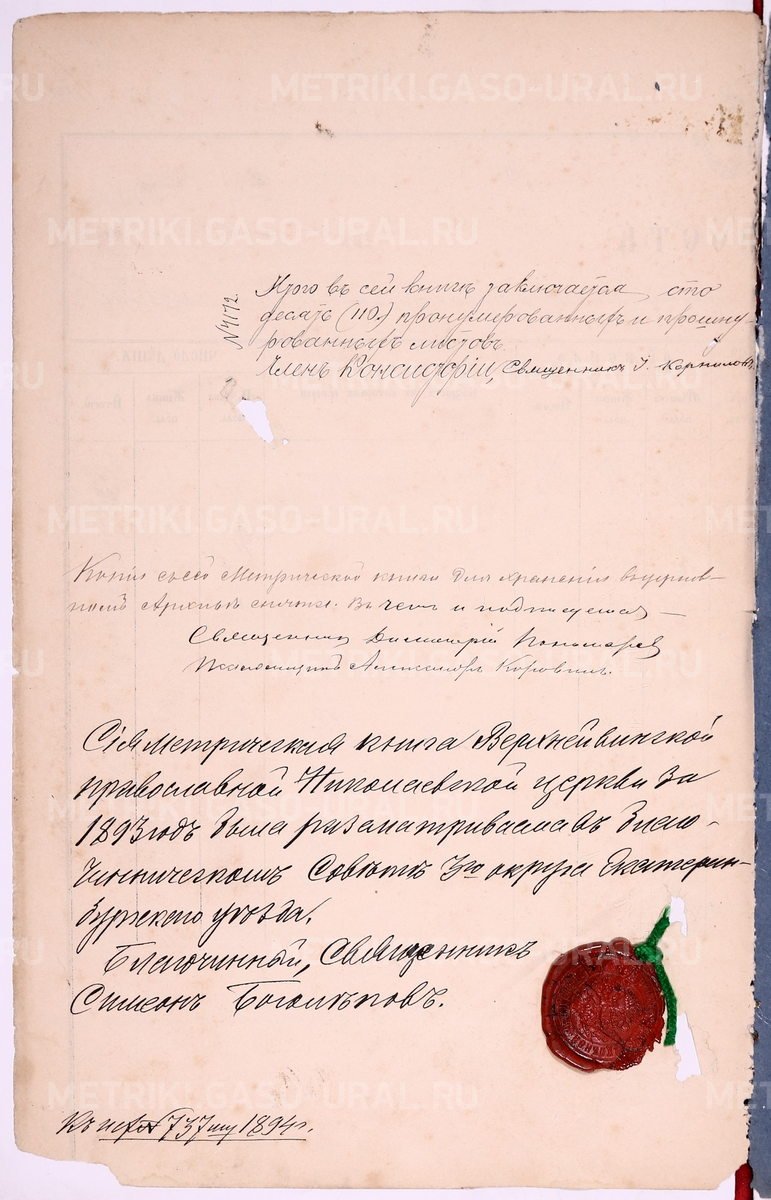 № 4172.
Итого въ сей книгѣ заключается сто
десять (110) пронумерованныхъ и прошну-
рованныхъ листовъ.
Членъ Консисторіи, Священникъ І. Корнилов
Копія съ сей Метрической книги для храненія въ церков-
номъ Архивѣ снята. Въ чемъ и подписуемся —
Священник Димитрій Пономарев
Псаломщикъ Александръ Коровин.
Сія метрическая книга Верхнейвинской
православной Николаевской церкви за
1893 годъ была разсматриваема въ Благо-
чинническомъ Совѣтѣ 3го округа Екатерин-
бургскаго уѣзда.
Благочинный, Священникъ
Симеонъ Боголѣповъ.
Къ № 737 1894 г.
METRIKI.GASO-URAL.RU